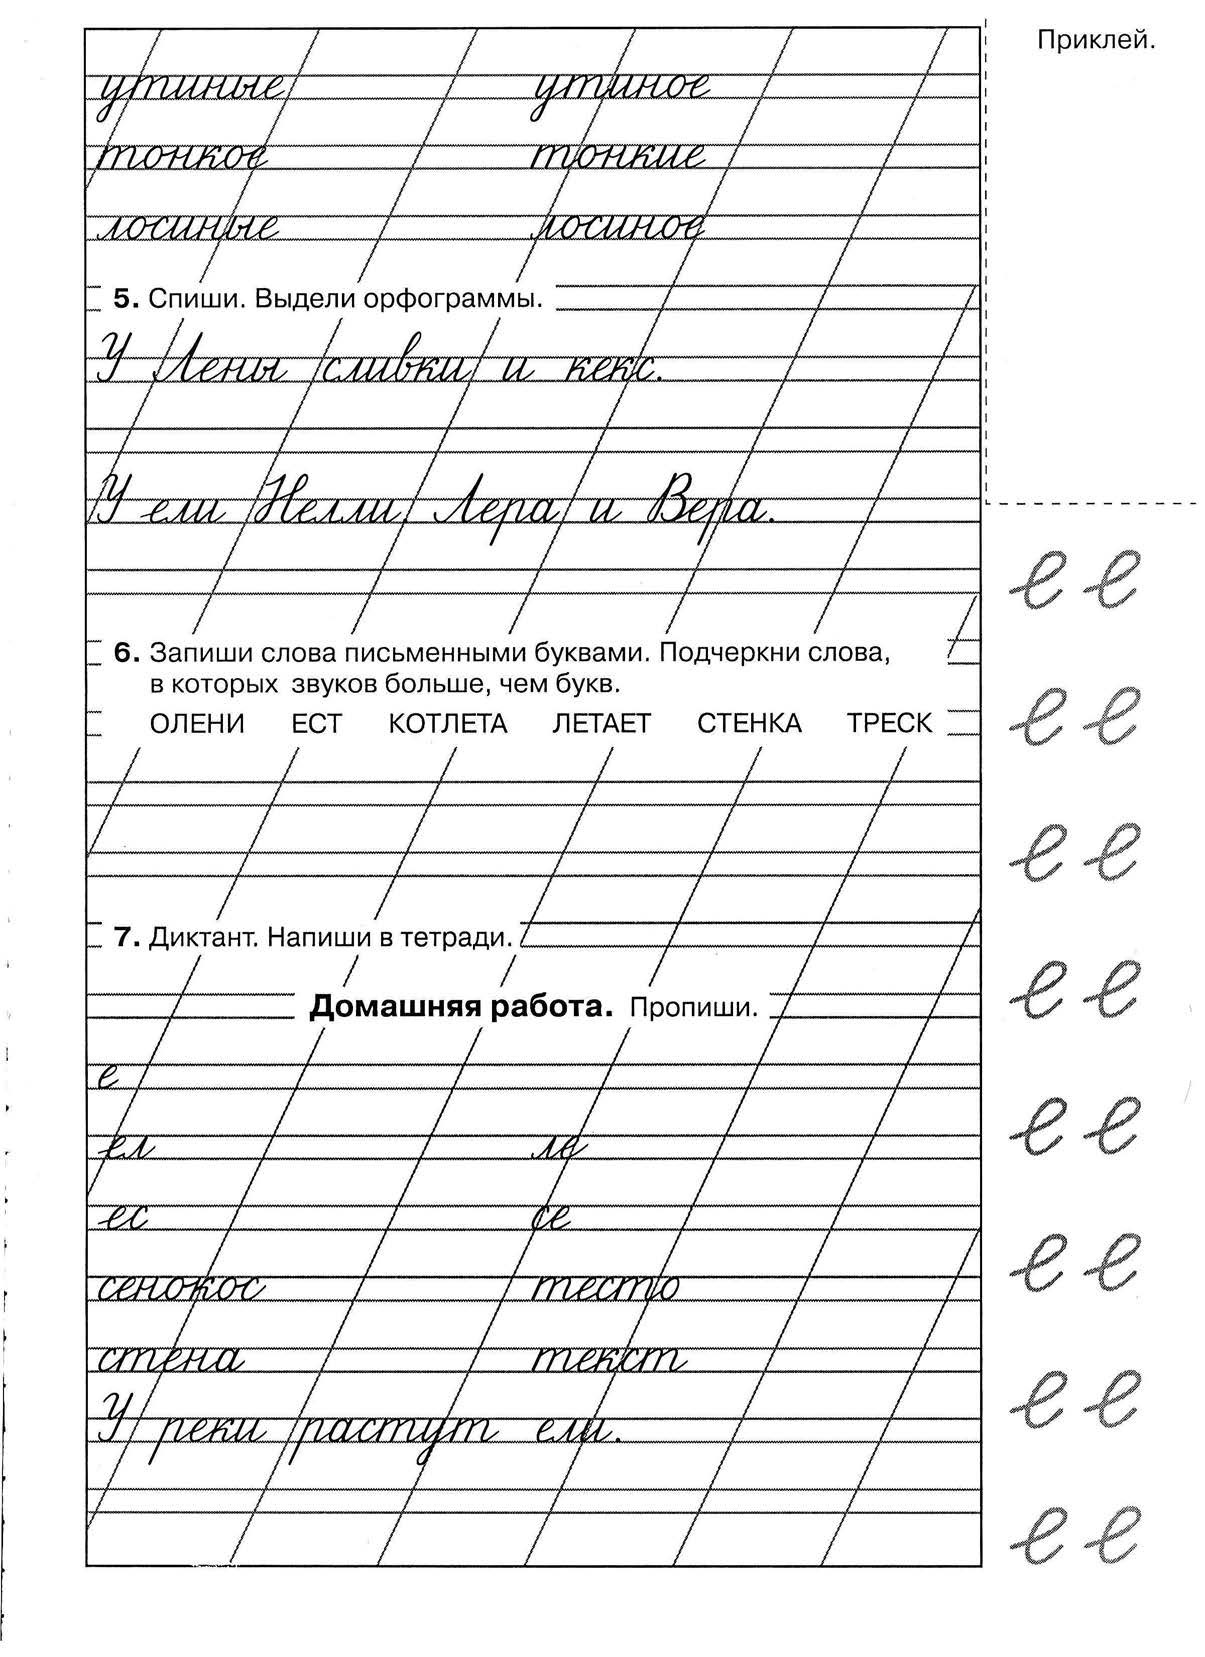 Приклей.
утиные утиное
тонкое тонкие
лосиные лосиное
5. Спиши. Выдели орфограммы.
У Лены сливки и кекс.
У ели Нелли, Лера и Вера.
е е
6. Запиши слова письменными буквами. Подчеркни слова,
в которых звуков больше, чем букв.
ОЛЕНИ ЕСТ КОТЛЕТА ЛЕТАЕТ СТЕНКА ТРЕСК
е е
е е
7. Диктант. Напиши в тетради.
е е
Домашняя работа. Пропиши.
е
е е
ел ле
ес се
е е
сенокос тесто
стена текст
е е
У реки растут ели.
е е